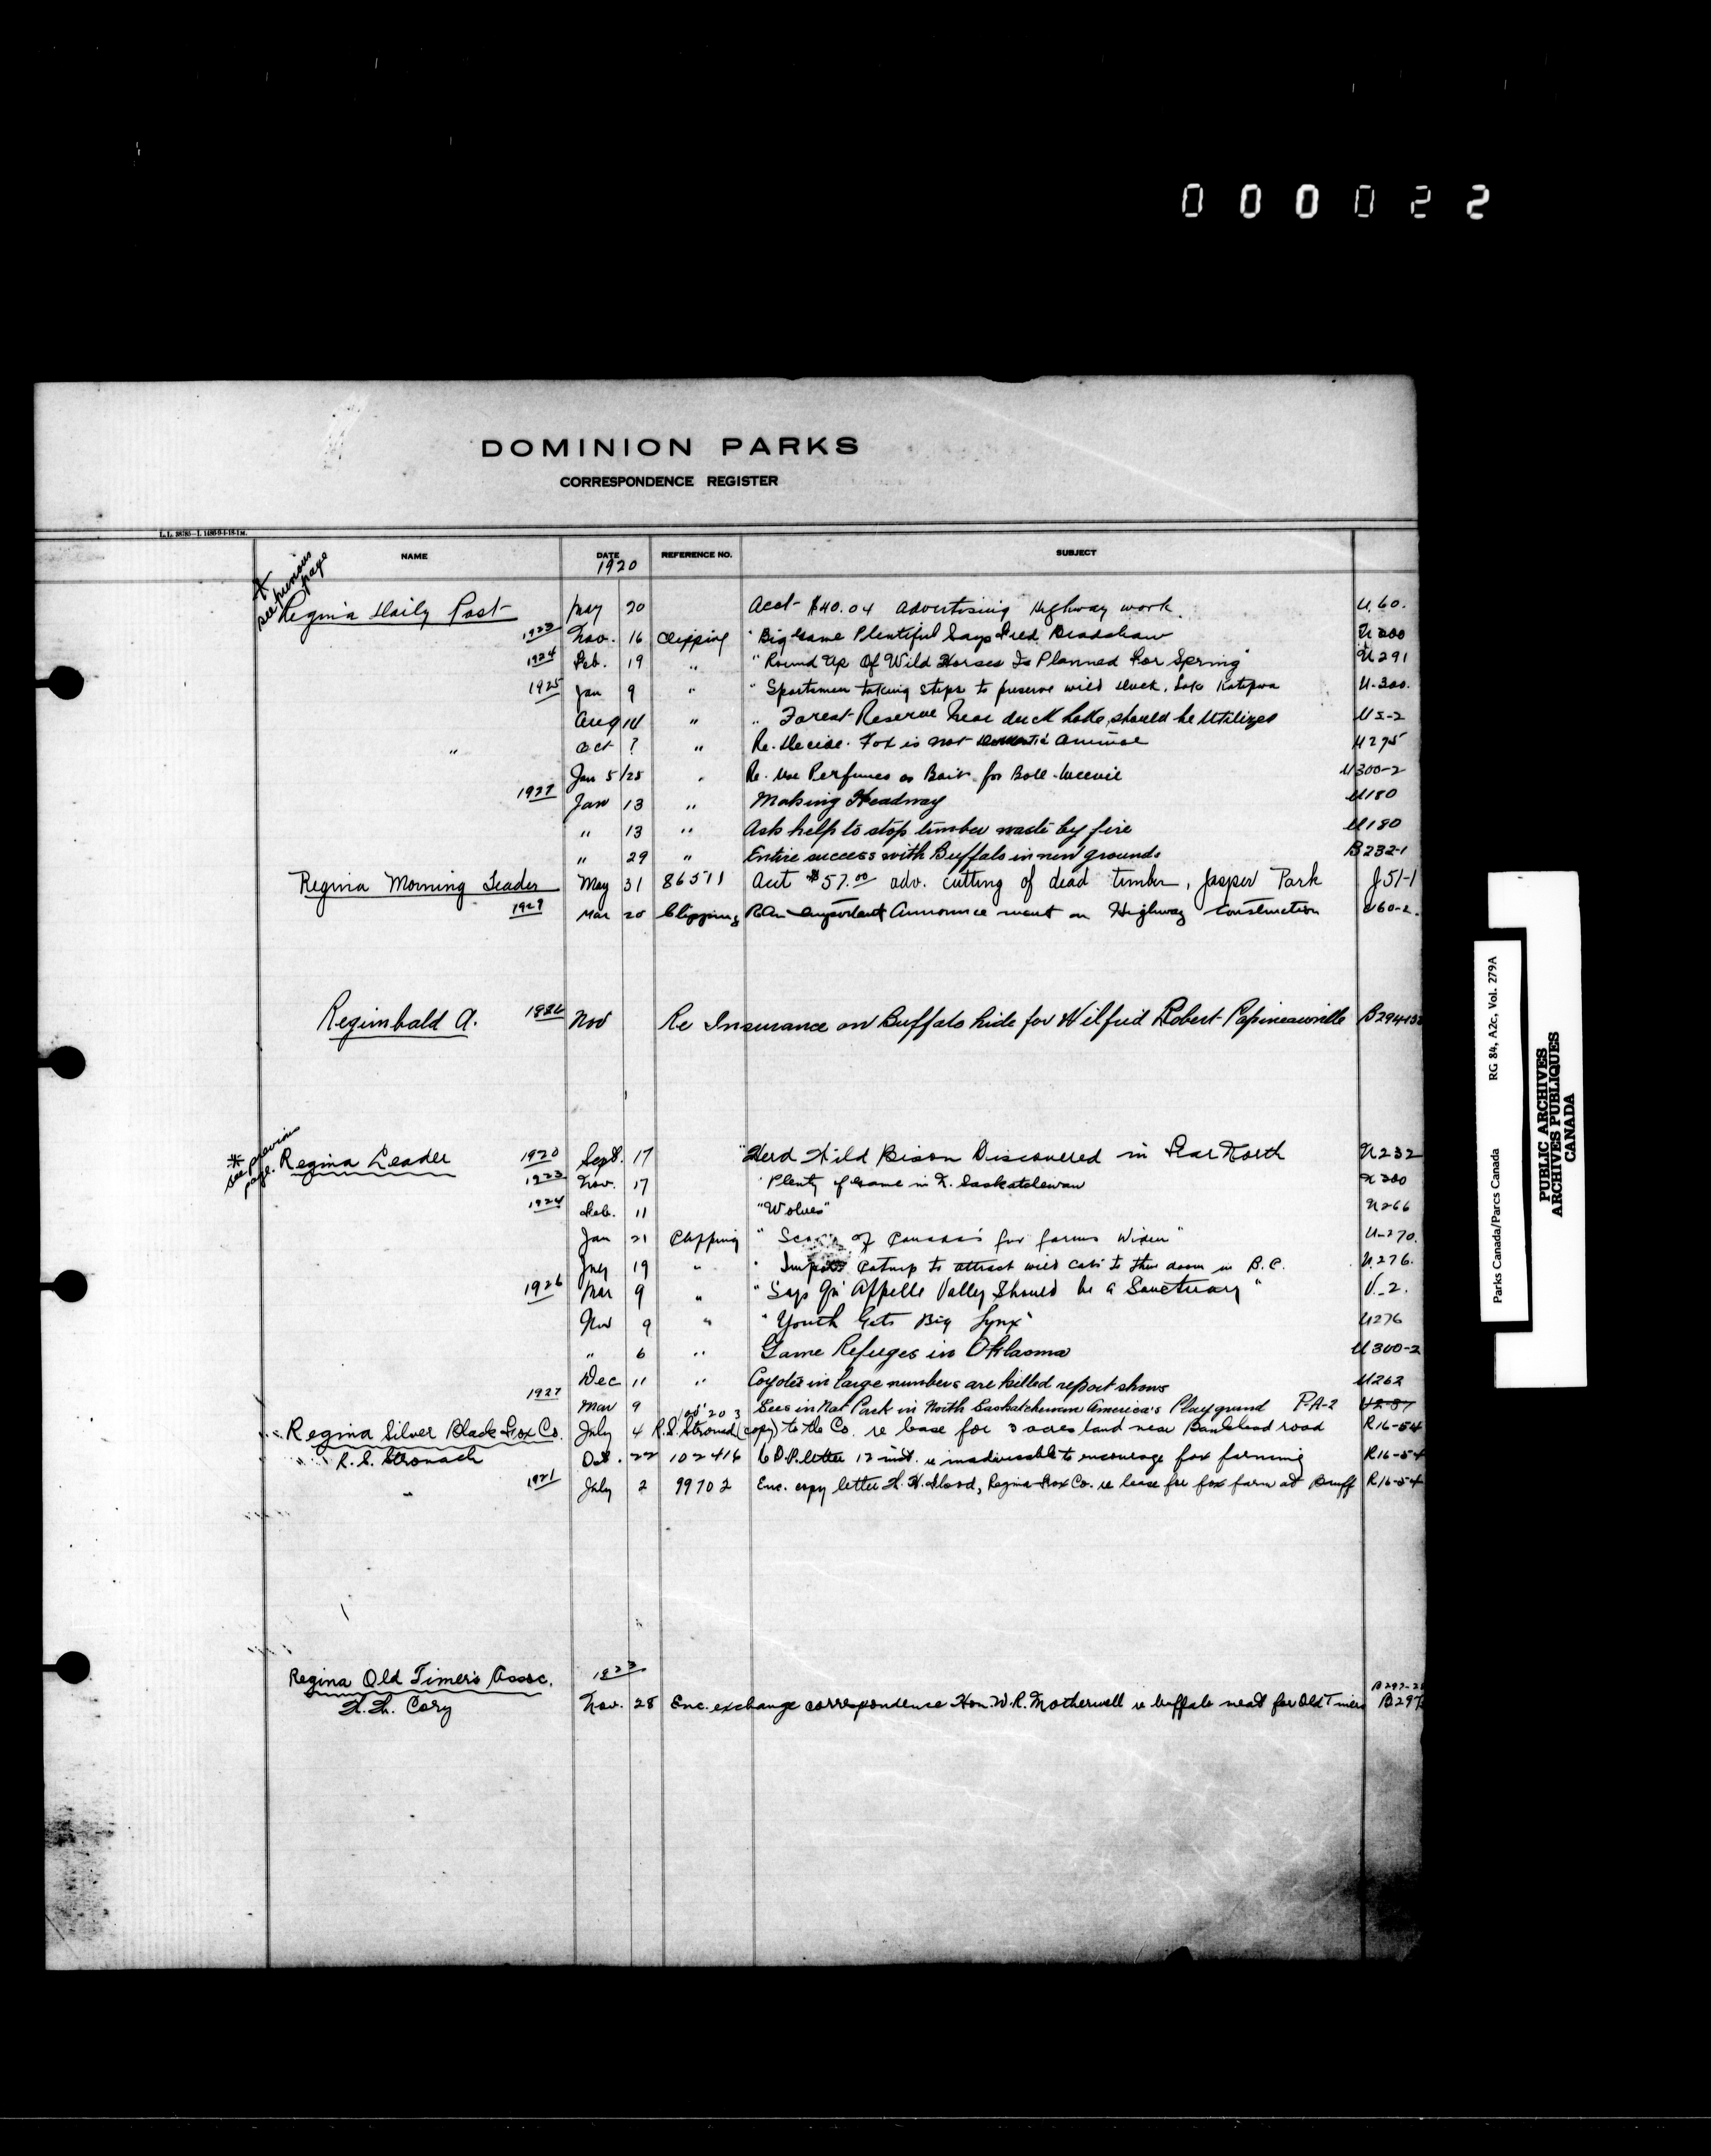 000022
DOMINION PARKS
CORRESPONDENCE REGISTER
L.L. 38785—I. 1486-9-1-18-1M.
NAME DATE REFERENCE NO. SUBJECT
1920
* see previous page
Regina Daily Post May 20 Acct $40.04 Advertising Highway work. U.60.
1923 Nov. 16 Clipping "Big Game Plentiful Says Fred Bradshaw U300
1924 Feb. 19 " "Round Up Of Wild Horses Is Planned For Spring" U291
1925 Jan 9 " "Sportsmen taking steps to preserve wild duck, Lake Katepwa U-300.
Aug 14 " " Forest Reserve near duck Lake, should be Utilized
" Oct ? " Re. Decise. Fox is not Domestic Animal U295
Jan 5/25 " Re. Use Perfumes as Bait for Boll-Weevil U300-2
1927 Jan 13 " Making Headway U180
" 13 " Ask help to stop timber waste by fire U180
" 29 " Entire success with Buffalo in new grounds B232-1
Regina Morning Leader May 31 86511 Acct $57.00 adv. cutting of dead timber, Jasper Park J51-1
1929 Mar 20 Clipping An Important Announcement on Highway Construction U60-2.
Regimbald A. 1926 Nov Re Insurance on Buffalo hide for Wilfrid Robert Papineauville
* see previous page. Regina Leader 1920 Sept. 17 "Herd Wild Bison Discovered in Far North U232
1923 Nov. 17 "Plenty of Game in N. Saskatchewan U300
1924 Feb. 11 "Wolves" U266
Jan 21 Clipping " of Canada's fur farms Widen" U-270.
19 " " Catnip to attract wild cats to their doom in B.C. U.276.
1926 Mar 9 " "Says Qu'Appelle Valley Should be a Sanctuary" V-2.
Nov 9 " "Youth Gets Big Lynx" U276
" 6 " Game Refuges in Oklaoma U300-2
Dec 11 " Coyotes in large numbers are killed report shows U262
1927 Mar 9 Sees in Nat Park in North Saskatchewan America's Playground P.A-2 U2-87
Regina Silver Black Fox Co. July 4 (copy) to the Co. re lease for 3 acres land near Bankhead road R16-54
" R.S. Stronach Oct. 22 102416 C.D.P. letter 12 inst. re inadvisable to encourage fox farming R16-54
" 1921 July 2 99702 Enc. copy letter H. H. Flood, Regina Fox Co. re lease for fox farm at Banff R16-54
Regina Old Timer's Assoc.
W. W. Cory Nov. 28 Enc. exchange correspondence Hon. W.R. Motherwell re buffalo meat for Old Timers B297
Parks Canada/Parcs Canada RG 84, A2c, Vol. 279A
PUBLIC ARCHIVES
ARCHIVES PUBLIQUES
CANADA